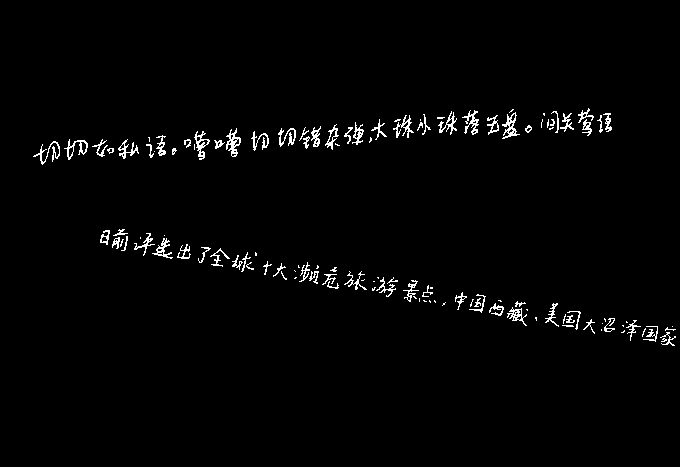 切切如私语。嘈嘈切切错杂弹,大珠小珠落玉盘。间关莺语
日前评选出了全球十大濒危旅游景点,中国西藏、美国大沼泽国家